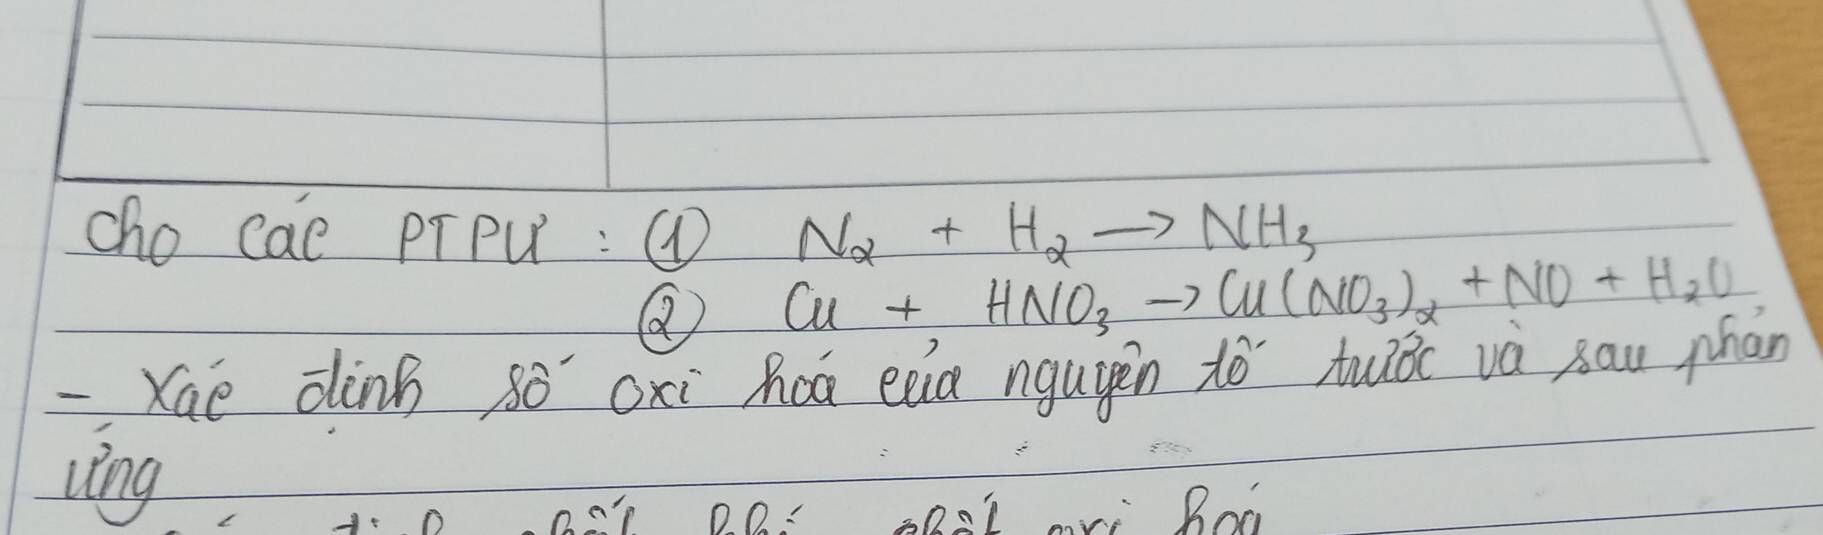 Cho các PTPƯ : ① N₂ + H₂ → NH₃
② Cu + HNO₃ → Cu(NO₃)₂ + NO + H₂O
- Xác định số oxi hoá của nguyên tố trước và sau phản
ứng
oxi hoá